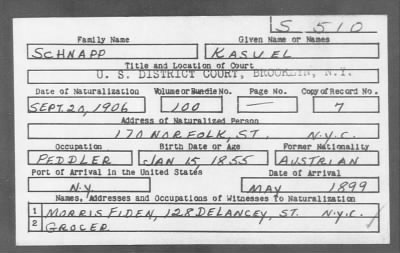 S 510
Family Name Given Name or Names
SCHNAPP KASUEL
Title and Location of Court
U. S. DISTRICT COURT, BROOKLYN, N.Y.
Date of Naturalization Volume or Bundle No. Page No. Copy of Record No.
SEPT. 20, 1906 100 — 7
Address of Naturalized Person
170 NORFOLK, ST. N.Y.C.
Occupation Birth Date or Age Former Nationality
PEDDLER JAN 15, 1855 AUSTRIAN
Port of Arrival in the United States Date of Arrival
N.Y. MAY 1899
Names, Addresses and Occupations of Witnesses To Naturalization
1 MORRIS FIDEN, 128 DELANCEY, ST. N.Y.C.
2 GROCER